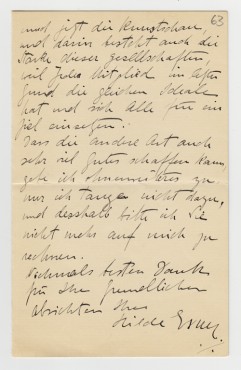 63
und jetzt die Kunstschau,
und darin besteht auch die
Stärke dieser Gesellschaften,
weil jedes Mitglied im
Grund die gleichen Ideale
hat und sich Alle für ein
Ziel einsetzen.
Dass die andere Art auch
sehr viel gutes schaffen kann,
gebe ich ohneweiters zu
nur ich tauge nicht dazu,
und desshalb bitte ich Sie
nicht mehr auf mich zu
rechnen.
Nochmals besten Dank
für Ihre freundlichen
Absichten Ihre
Hilde Exner